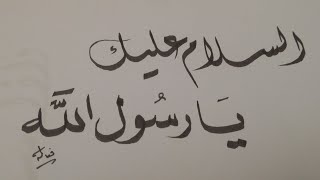 السلام عليك
يَا رسُول اللَّه